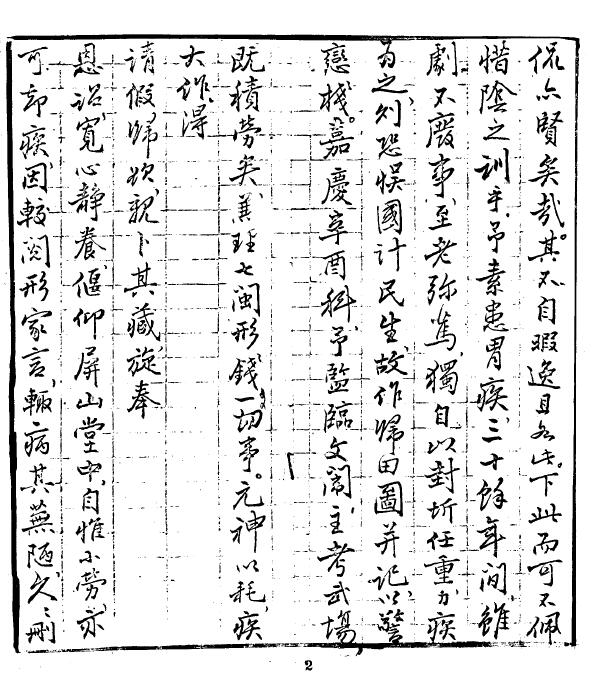 侃亦賢矣哉。其不自暇逸且如此。下此而可不佩
惜陰之訓乎。予素患胃疾、三十餘年間、雖
劇不廢事、至老弥篤、獨自以封圻任重、力疾
為之、則恐悞國計民生、故作歸田圖并記以警
戀棧。嘉慶辛酉科予監臨文闈、主考武場、
既積勞矣、兼理七閩形錢一切事。元神以耗、疾
大作、得
請假歸、欲親卜其藏、旋奉
恩詔、寬心靜養、偃仰屏山堂中、自惟小勞亦
可却疾、因較閱形家言、輒病其蕪陋、久、刪
2